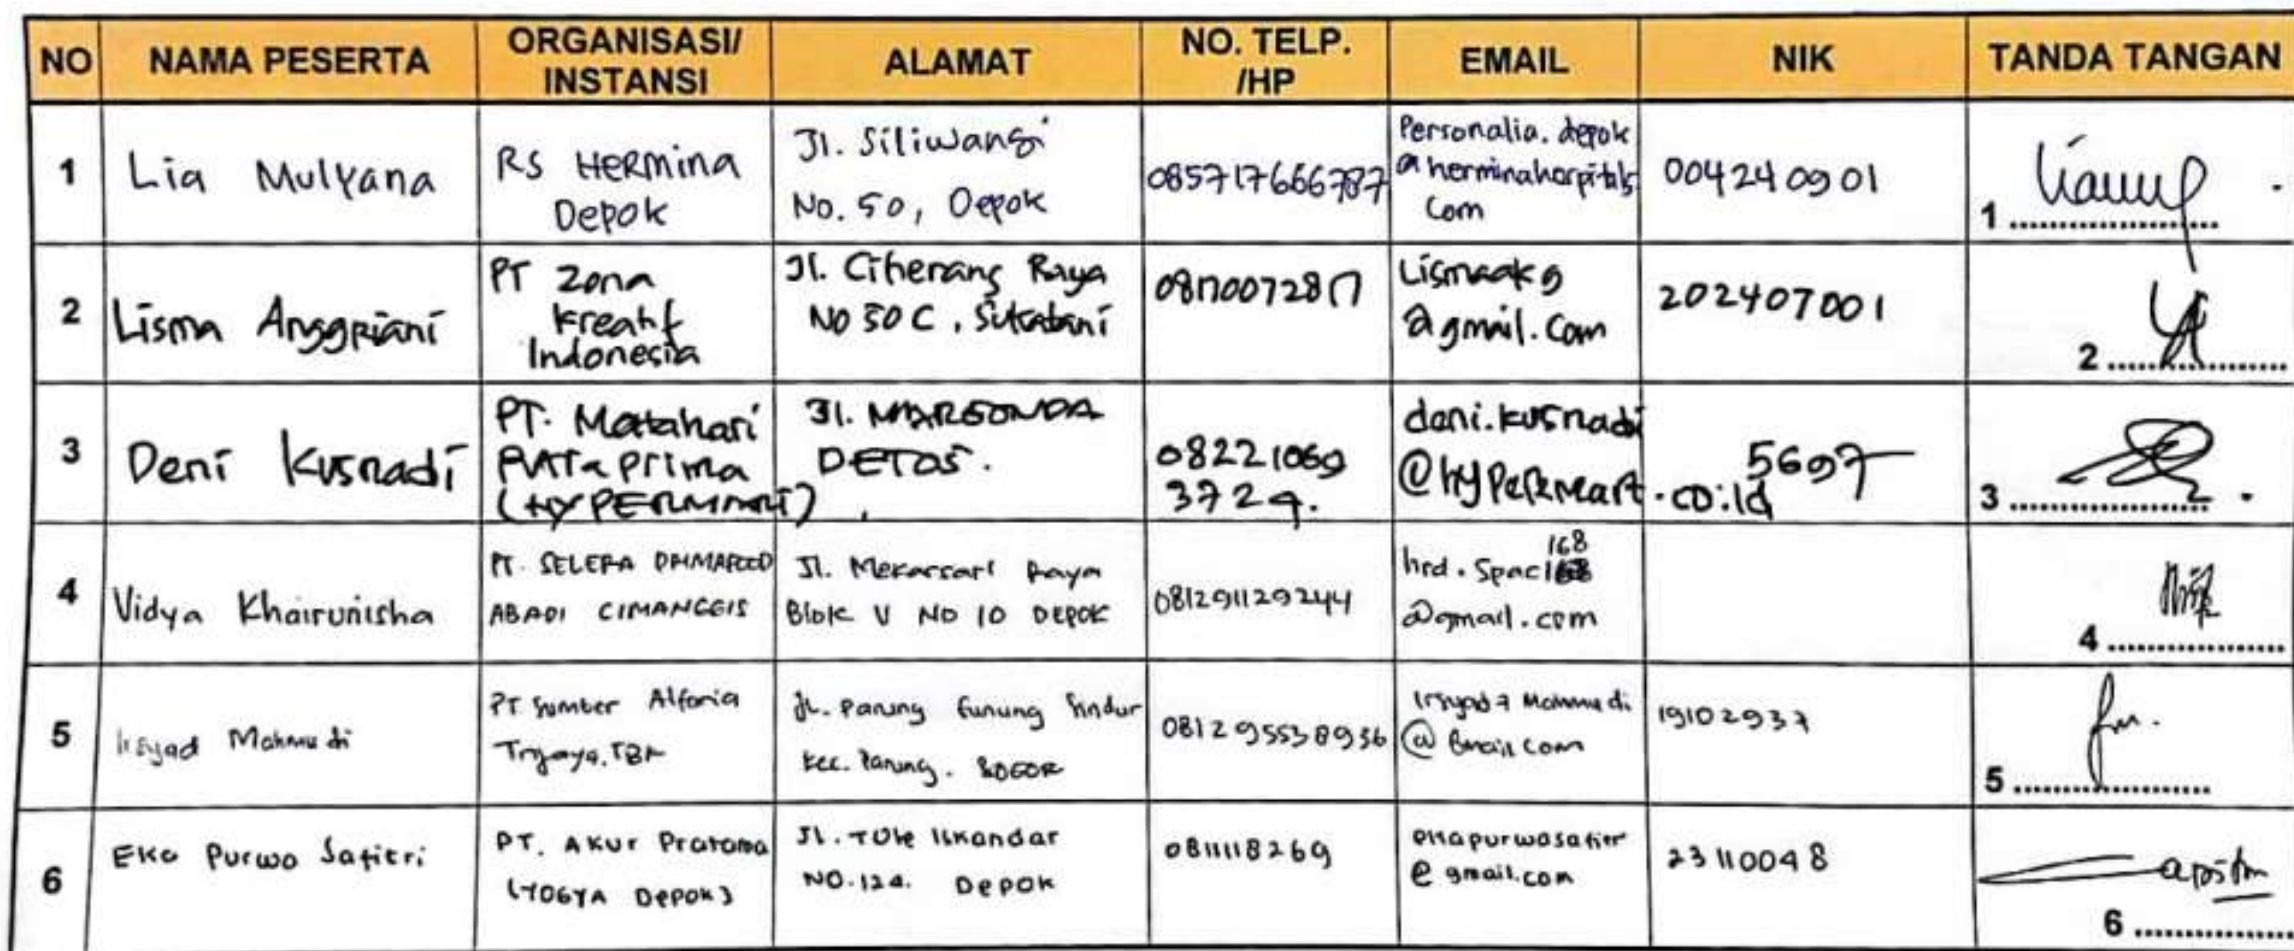 NO NAMA PESERTA ORGANISASI/ INSTANSI ALAMAT NO. TELP. /HP EMAIL NIK TANDA TANGAN
1 Lia Mulyana
RS Hermina
Depok
Jl. Siliwangi
No. 50, Depok
085717666787
Personalia.depok
@herminahospitals
com
004240901
1
2 Lisma Anggriani
PT Zona
Kreatif
Indonesia
Jl. Ciherang Raya
No 50 C, Sukatani
0817007281
@gmail.com
202407001
2
3 Deni Kusnadi
PT. Matahari
Putra prima
(HYPERMART)
Jl. MARGONDA
DETOS.
08221069
3724.
deni.kusnadi
@hypermart.co.id
5697
3
4 Vidya Khairunisha
PT. SELERA
ABADI CIMANGGIS
Jl. Mekarsari Raya
Blok V NO 10 DEPOK
081291129244
hrd.spac168
@gmail.com
4
5 Irsyad Mahmudi
PT Sumber Alfaria
Trijaya.TBK
JL. Parung Gunung Sindur
Kec. Parung. BOGOR
081295538936
Irsyad7Mahmudi
@Gmail.com
19102937
5
6 Eka Purwa Safitri
PT. AKUr Pratama
(YOGYA DEPOK)
Jl. Tole Iskandar
NO.124. Depok
0811118269
@gmail.com
23110048
6